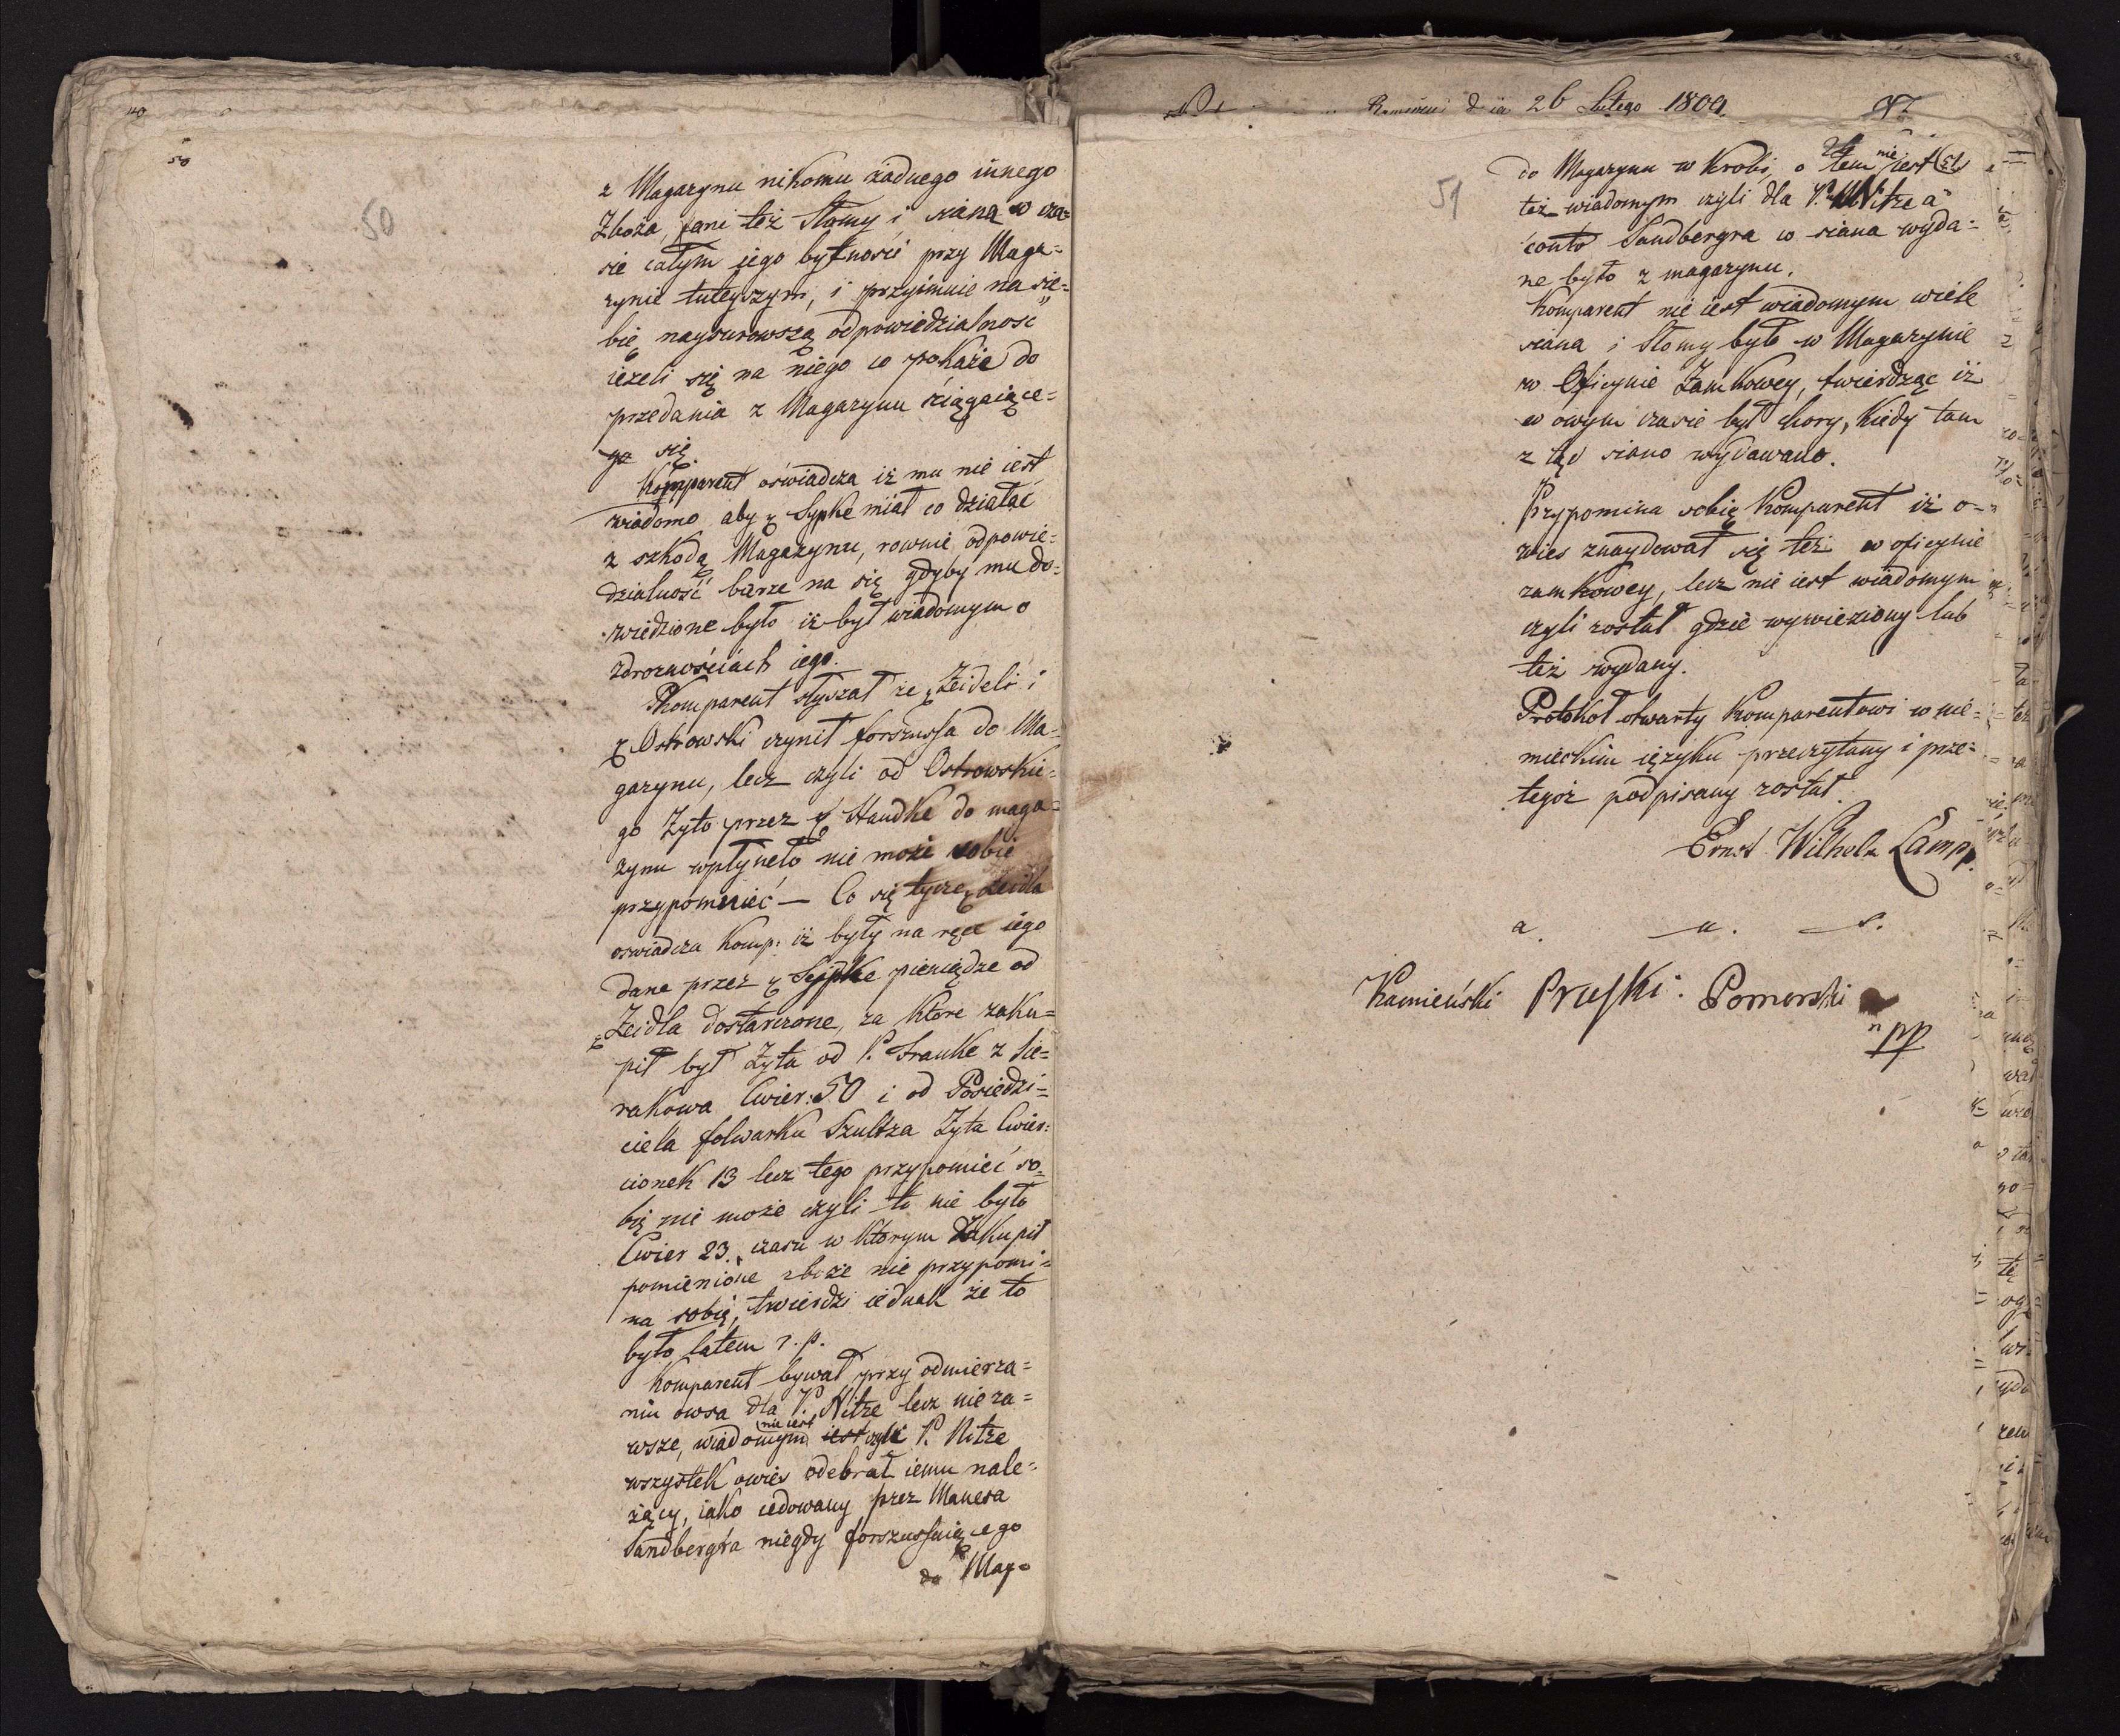 50
50
z Magazynu nikomu żadnego innego
Zboża, ani też Słomy i siana w cza=
sie całym iego bytności przy Maga=
zynie tuteyszym, i przyimuie na sie=
bię naysurowszą odpowiedzialnosc
ieżeli się na niego co pokaże do
przedania z Magazynu ściągaiące=
go się.
Komparent oświadcza iż mu nie iest
wiadomo aby z Sypke miał co działać
z szkodą Magazynu, rownie odpowie=
dzialność bierze na się gdyby mu do=
wiedzione było iż był wiadomym o
zdrożnościach iego.
Komparent słyszał że z Zeideli i
z Ostrowski czynił forszussa do Ma=
gazynu, lecz czyli od Ostrowskie=
go Zyto przez z Handke do maga=
zynu wpłyneło nie może sobie
przypomnieć — Co się tycze z Zeidla
oswiadcza Komp: iż były na ręce iego
dane przez z Sypke pieniądze od
z Zeidla dostarczone, za ktore zaku=
pił był Zyta od P. Franke z Sie=
rakowa Cwier: 50 i od Posiedzi=
ciela folwarku Szultza Zyta Cwier=
cionek 13 lecz tego przypomieć so=
bię nie może czyli to nie było
Cwier 23., czasu w ktorym zakupił
pomienione zboże nie przypomi=
na sobię, twierdzi iednak że to
było latem r. p.
Komparent bywał przy odmierza=
niu owsa dla P. Nitze lecz nie za=
wsze, wiadomym nie iest iest czyli P. Nitze
wszystek owies odebrał iemu nale=
żący, iako cedowany przez Manesa
Sandbergra niegdy forszussuiącego
do Mag=
dia 26 Lutego 1809.
51
do Magazynu w Krobi, o tem nie iest
też wiadomym czyli dla P. Nitze a
conto Sandbergra co siana wyda=
ne było z magazynu.
Komparent nie iest wiadomym wiele
siana i Słomy było w Magazynie
w Oficynie Zamkowey, twierdząc iż
w owym czasie był chory, kiedy tam
z tąd siano wydawano.
Przypomina sobię Komparent iż o=
wies znaydował się też w oficynie
zamkowey, lecz nie iest wiadomym
czyli został gdzie wywieziony lub
też wydany.
Protokół otwarty Komparentowi w nie=
mieckim ięzyku przeczytany i prze=
tegoż podpisany został.
Ernst Wilhelm Lamp
a. u. s.
Kamieński Pruski. Pomorski
pp